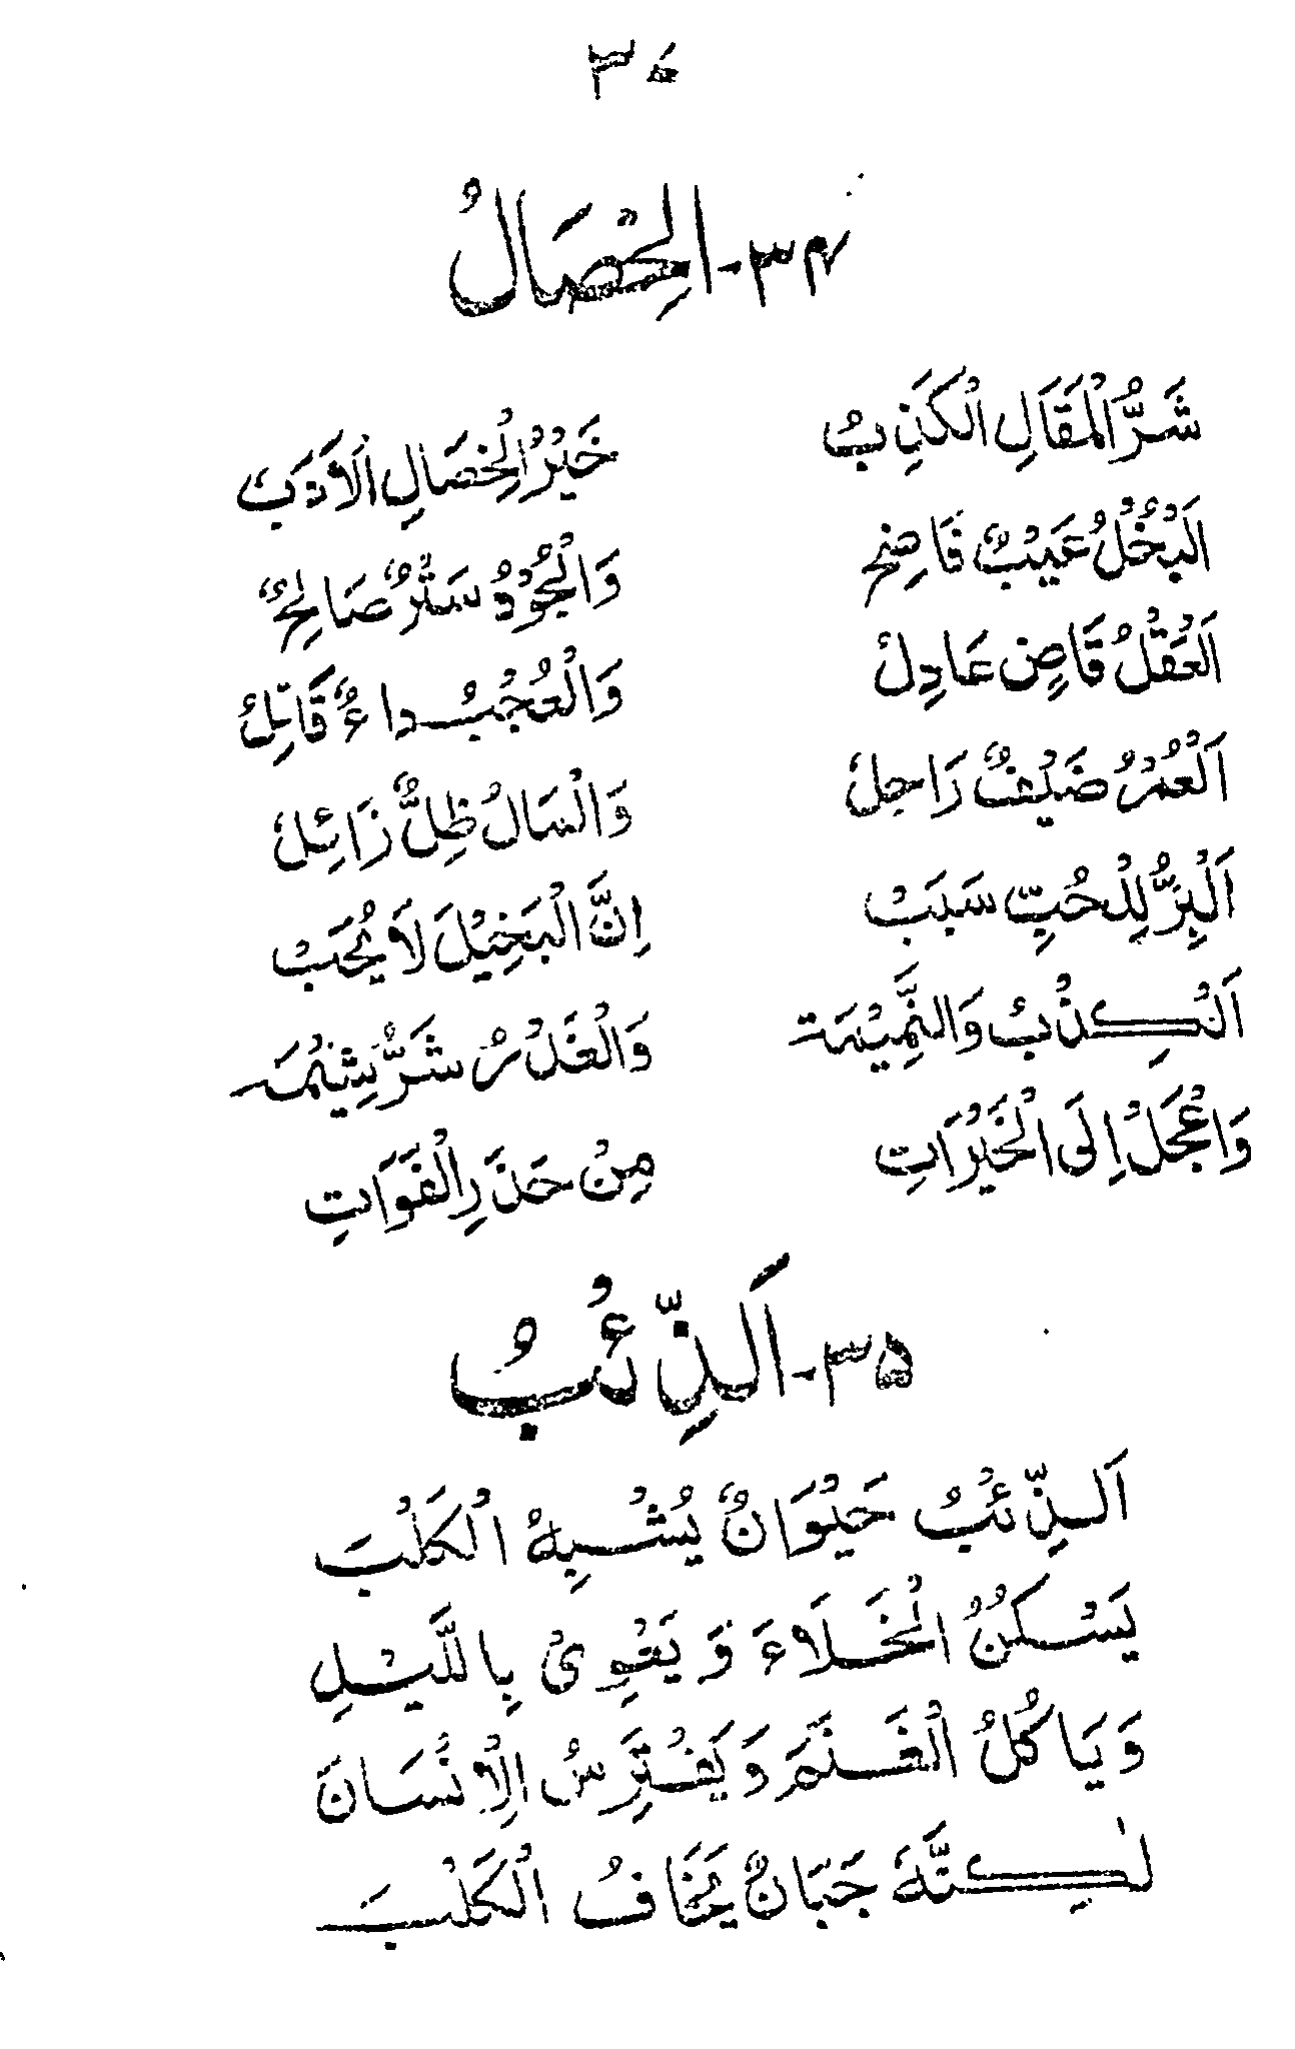 ۳۴-الْخِصَالُ
شَرُّ الْمَقَالِ الْكَذِبُ خَيْرُ الْخِصَالِ الْاَدَبُ
اَلْبُخْلُ عَيْبٌ فَاضِحٌ وَالْجُوْدُ سَتْرٌ صَالِحٌ
اَلْعَقْلُ قَاضٍ عَادِلٌ وَالْعُجْبُ داءٌ قَاتِلُ
اَلْعُمْرُ ضَيْفٌ رَاحِلٌ وَالْمَالُ ظِلٌّ زَائِلٌ
اَلْبِرُّ لِلْحُبِّ سَبَبْ اِنَّ الْبَخِيْلَ لَا يُحَبْ
اَلْكِذْبُ وَالنَّمِيْمَة وَالْغَدْرُ شَرُّ شِيْمَه
وَاعْجَلْ اِلَى الْخَيْرَاتِ مِنْ حَذَرِ الْفَوَاتِ
۳۵-اَلذِّئْبُ
اَلذِّئْبُ حَيْوَانٌ يُشْبِهُ الْكَلْبَ
يَسْكُنُ الْخَلَاءَ وَ يَعْوِىْ بِاللَّيْلِ
وَ يَاكُلُ الْغَنَمَ وَ يَفْتَرِسُ الْاِنْسَانَ
لٰكِنَّهٗ جَبَانٌ يَخَافُ الْكَلْبَ